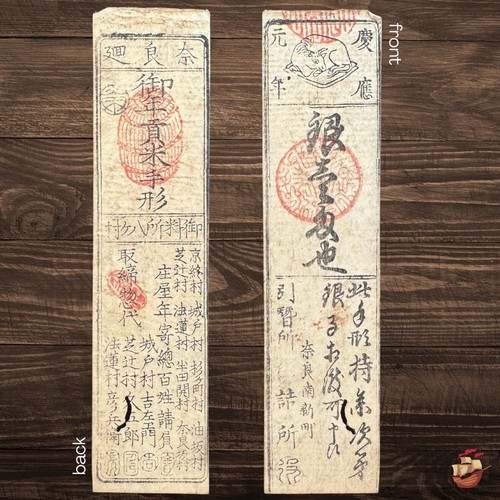 back
奈良廻
御年貢米手形
御料所八ヶ村
京終村 城戸村 杉町村 油坂村
芝辻村 法蓮村 半田開村 奈良坂村
庄屋年寄總百姓請負
取締惣代
城戸村 吉左衛門
芝辻村 五郎
法蓮村 彦兵衛
front
慶應
元年
銀壹匁也
此手形持参次第
銀子相渡可申候
奈良南新町
引替所 詰所